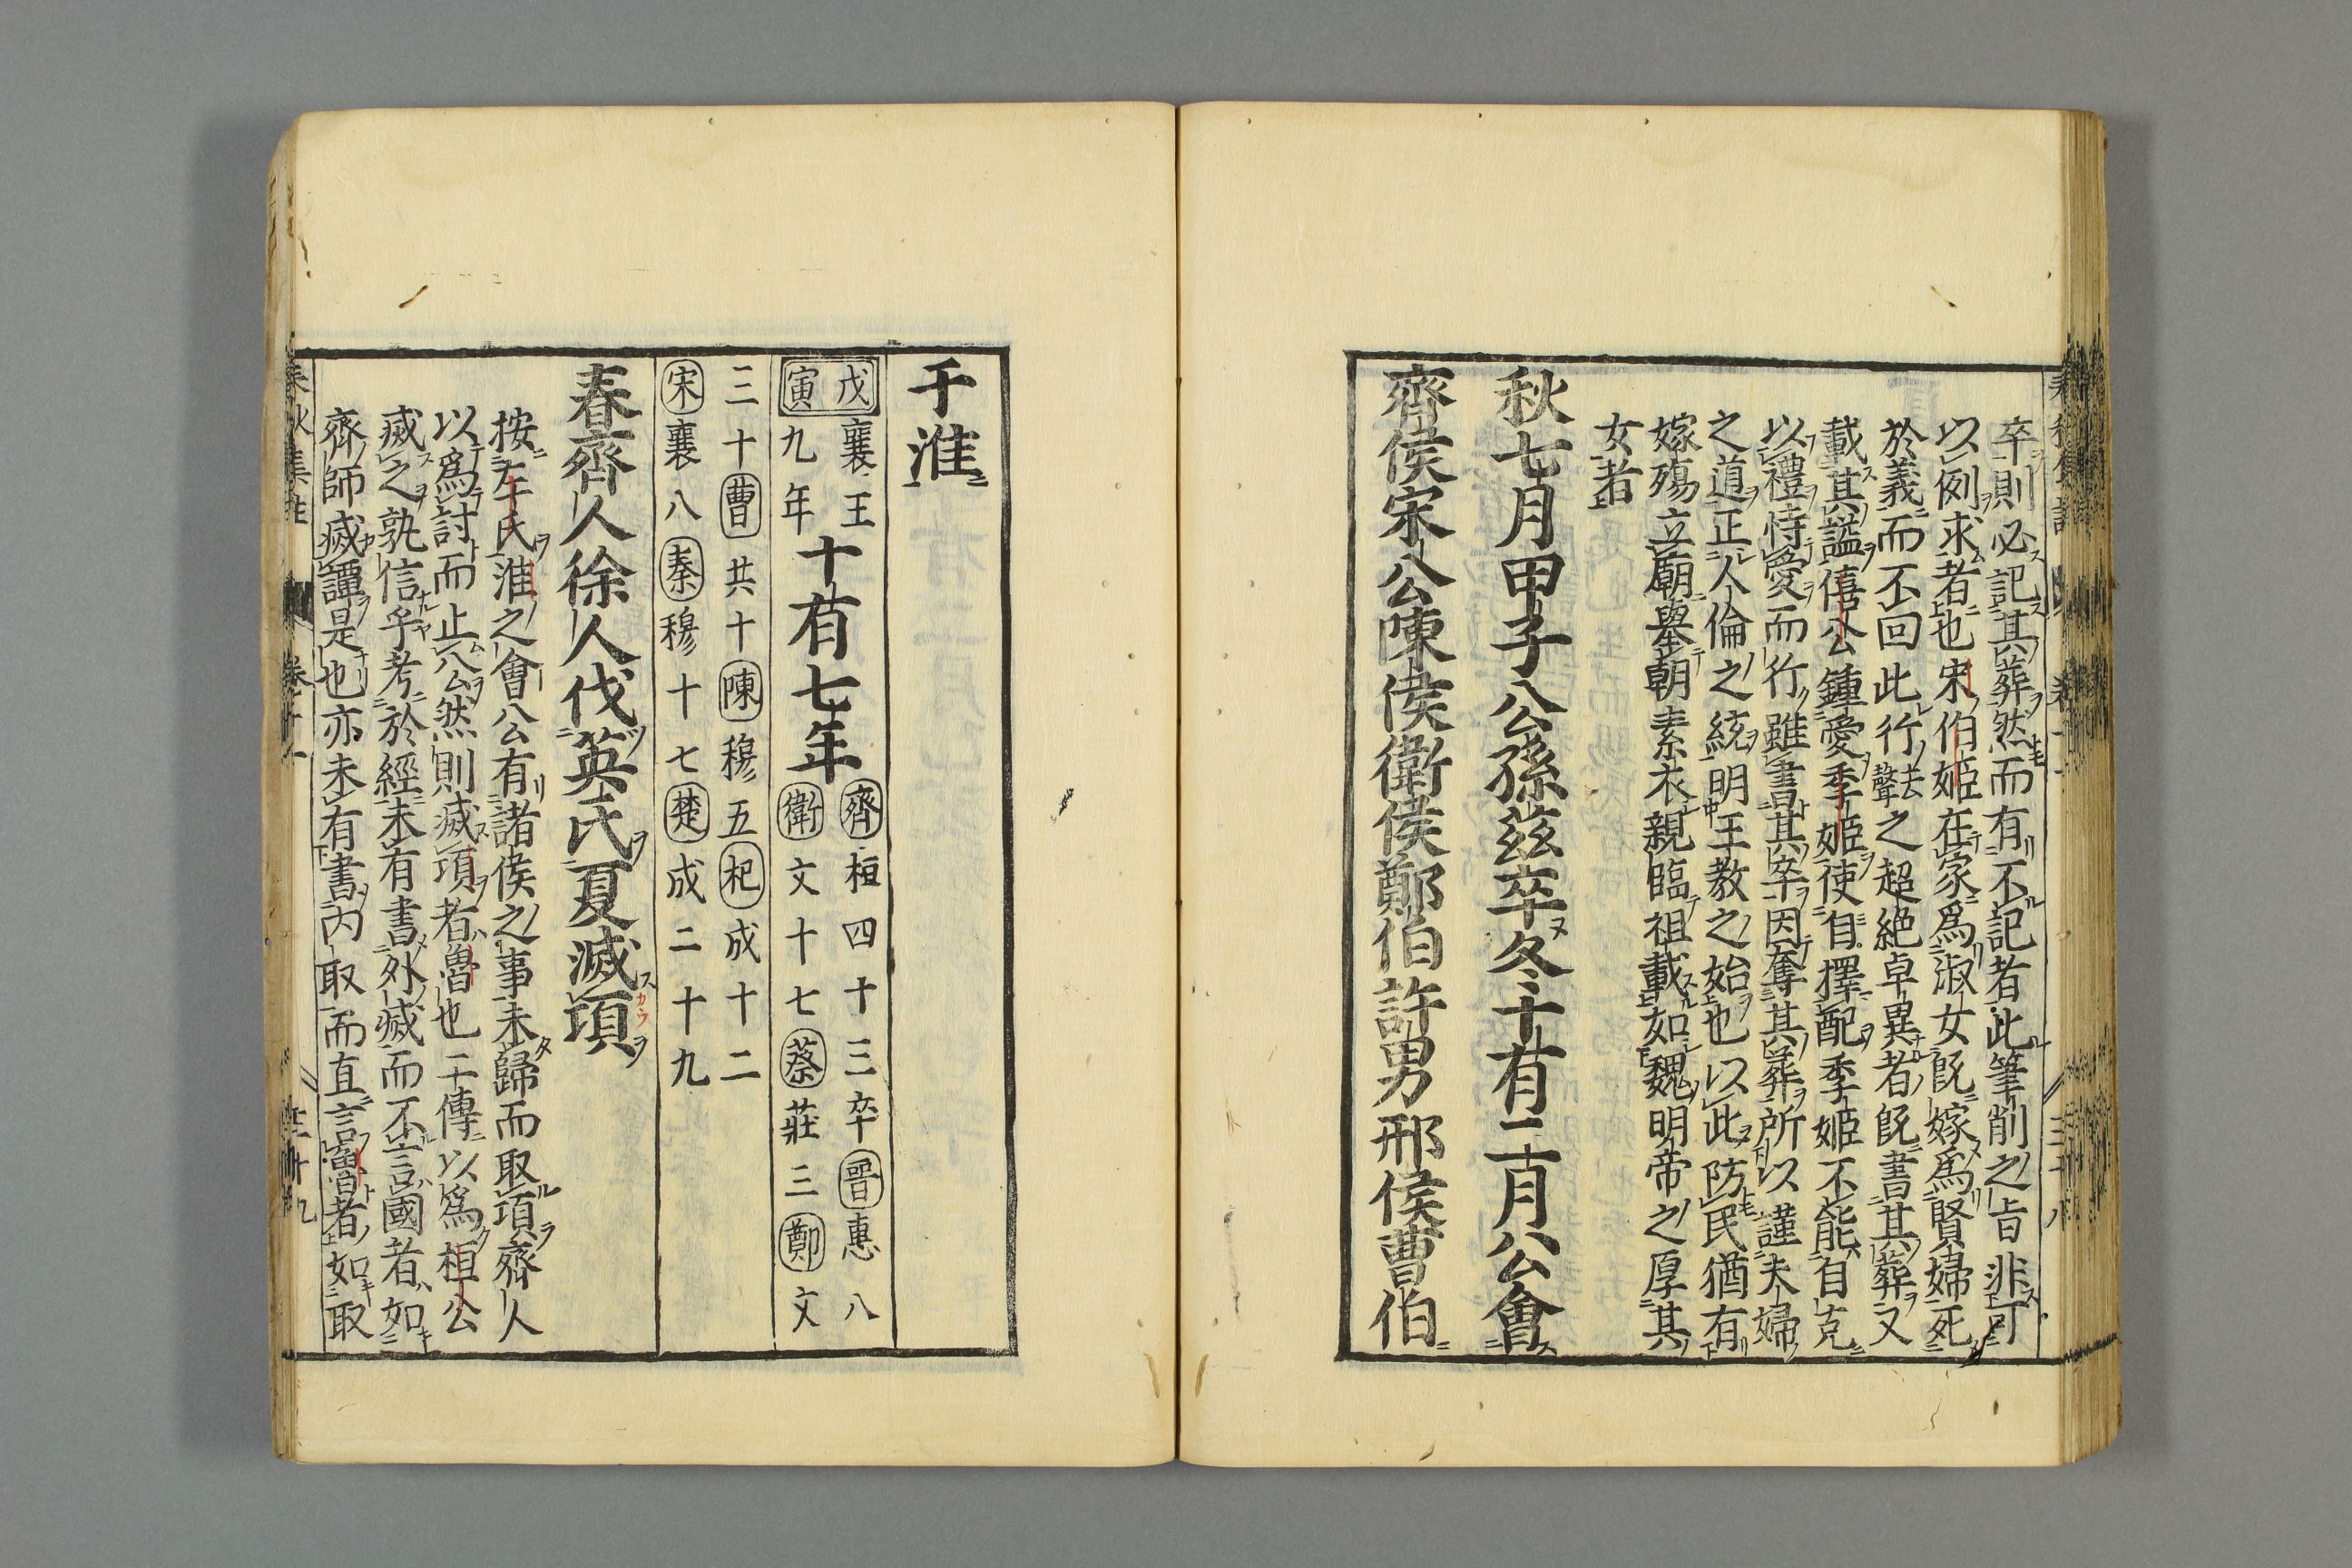 卒則必記其葬然而有不記者此筆削之旨非可
以例求者也宋伯姬在家爲淑女既嫁爲賢婦死
於義而不回此行去聲之超絶卓異者既書其葬又
載其謚僖公鍾愛季姬使自擇配季姬不能自克
以禮恃愛而行雖書其卒因奪其葬所以謹夫婦
之道正人倫之統明王教之始也以此防民猶有
嫁殤立廟舉朝素衣親臨祖載如魏明帝之厚其
女者
秋七月甲子公孫茲卒冬十有二月公會
齊侯宋公陳侯衛侯鄭伯許男邢侯曹伯
于淮
戊寅 襄王九年 十有七年 齊桓四十三卒 晉惠八 衛文十七 蔡莊三 鄭文
三十 曹共十 陳穆五 杞成十二
宋襄八 秦穆十七 楚成二十九
春齊人徐人伐英氏夏滅項
按左氏淮之會公有諸侯之事未歸而取項齊人
以爲討而止公然則滅項者魯也二傳以爲桓公
滅之孰信乎考於經未有書外滅而不言國者如
齊師滅譚是也亦未有書内取而直言魯者如取
春秋集註 卷十一 三十九